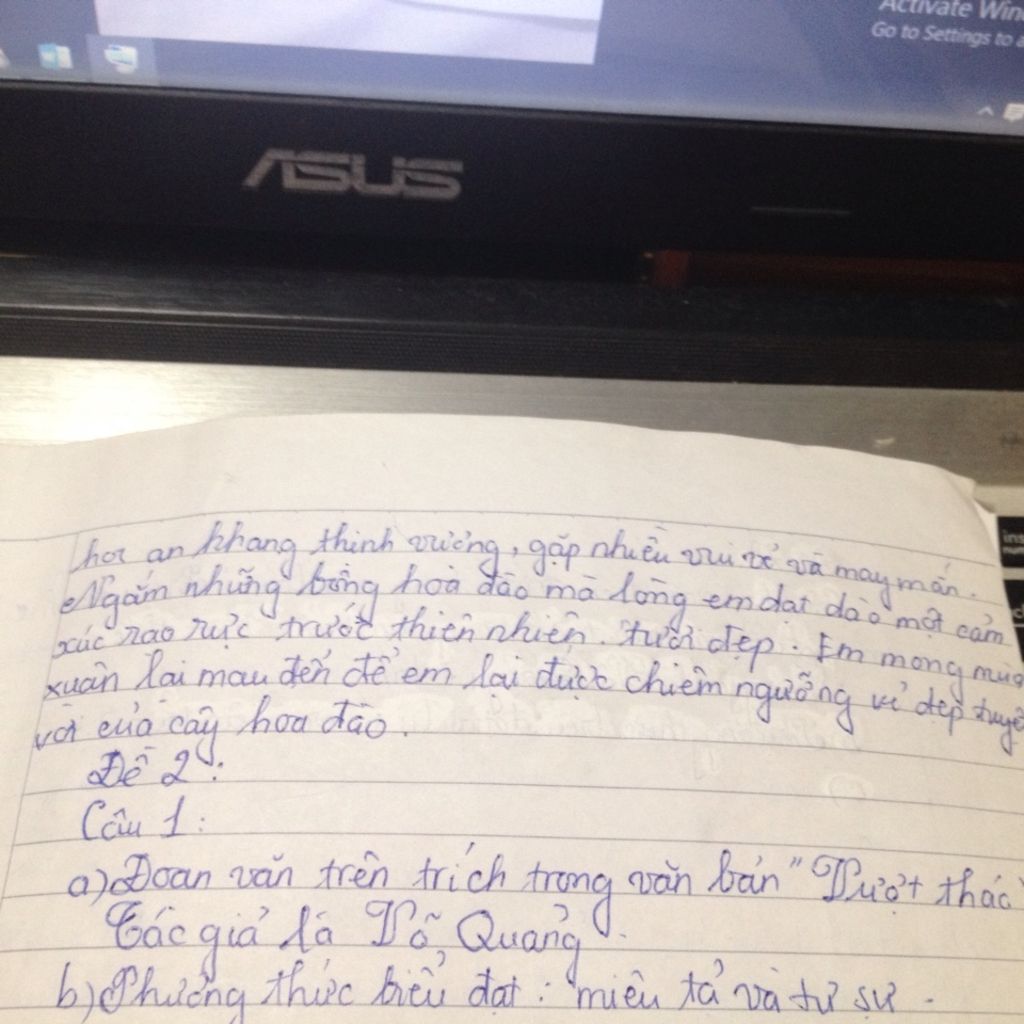 Activate Win
Go to Settings to a
ASUS
ins
hoa an khang thịnh vượng, gặp nhiều vui vẻ và may mắn.
Ngắm những bông hoa đào mà lòng em dạt dào một cảm
xúc rạo rực trước thiên nhiên tươi đẹp. Em mong mùa
xuân lại mau đến để em lại được chiêm ngưỡng vẻ đẹp tuyệ
vời của cây hoa đào.
Đề 2:
Câu 1:
a) Đoạn văn trên trích trong văn bản "Vượt thác
Tác giả là Võ Quảng.
b) Phương thức biểu đạt: miêu tả và tự sự.